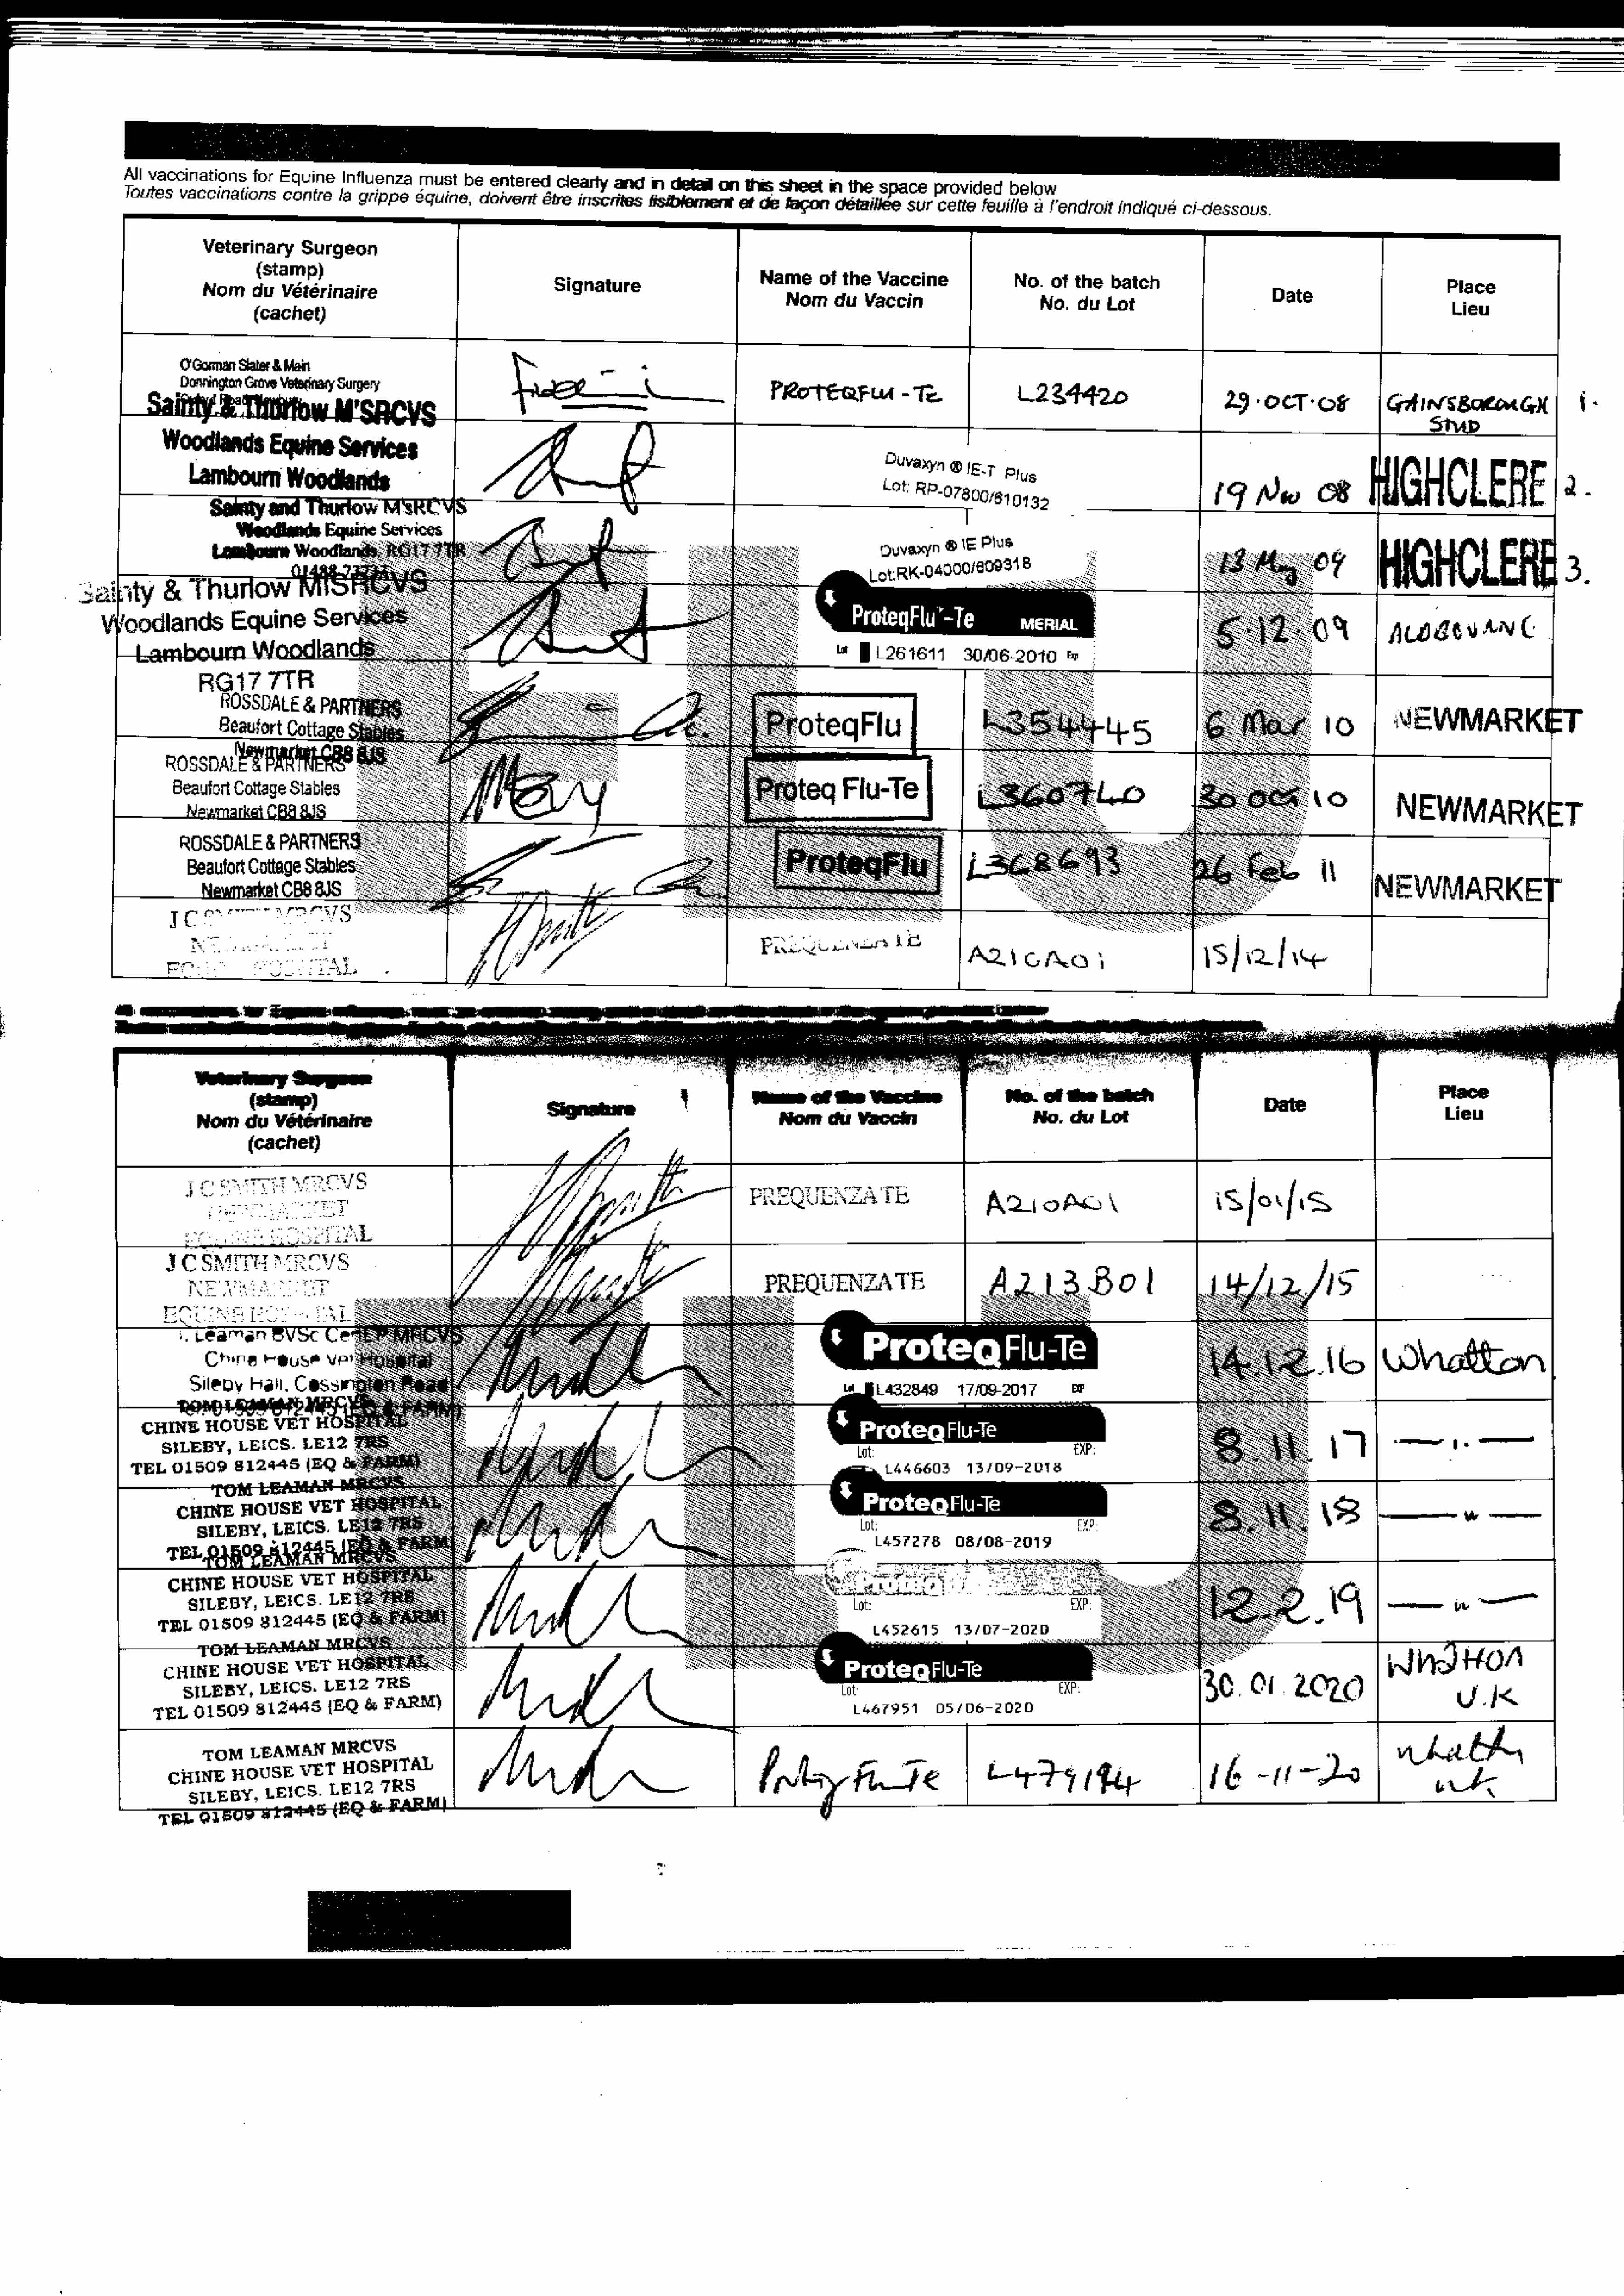 All vaccinations for Equine Influenza must be entered clearly and in detail on this sheet in the space provided below
Toutes vaccinations contre la grippe équine, doivent être inscrites lisiblement et de façon détaillée sur cette feuille à l'endroit indiqué ci-dessous.
Veterinary Surgeon
(stamp)
Nom du Vétérinaire
(cachet)
Signature
Name of the Vaccine
Nom du Vaccin
No. of the batch
No. du Lot
Date
Place
Lieu
O'Gorman Slater & Main
Donnington Grove Veterinary Surgery
PROTEQFLU-TE
L234420
29.OCT.08
GAINSBOROUGH
STUD
1.
Sainty & Thurlow M'SRCVS
Woodlands Equine Services
Lambourn Woodlands
Duvaxyn ® IE-T Plus
Lot: RP-07800/610132
19 Nov 08
HIGHCLERE
2.
Sainty and Thurlow MSRCVS
Woodlands Equine Services
Lambourn Woodlands, RG17 7TR
Duvaxyn ® IE Plus
Lot:RK-04000/609318
13 May 09
HIGHCLERE
3.
Sainty & Thurlow MISRCVS
Woodlands Equine Services
Lambourn Woodlands
RG17 7TR
ProteqFlu-Te MERIAL
Lot L261611 30/06-2010 Exp
5.12.09
ROSSDALE & PARTNERS
Beaufort Cottage Stables
Newmarket CB8 8JS
ProteqFlu
L354445
6 Mar 10
NEWMARKET
ROSSDALE & PARTNERS
Beaufort Cottage Stables
Newmarket CB8 8JS
Proteq Flu-Te
L360740
30 Oct 10
NEWMARKET
ROSSDALE & PARTNERS
Beaufort Cottage Stables
Newmarket CB8 8JS
ProteqFlu
L368693
26 Feb 11
NEWMARKET
PREQUENZATE
15/12/14
FLU
Veterinary Surgeon
(stamp)
Nom du Vétérinaire
(cachet)
Signature
Name of the Vaccine
Nom du Vaccin
No. of the batch
No. du Lot
Date
Place
Lieu
J C SMITH MRCVS
NEWMARKET
EQUINE HOSPITAL
PREQUENZATE
A210A01
15/01/15
J C SMITH MRCVS
NEWMARKET
EQUINE HOSPITAL
PREQUENZATE
A213B01
14/12/15
Leaman BVSc CertEP MRCVS
China House Vet Hospital
Sileby Hall, Cossington Road
ProteqFlu-Te
L432849 17/09-2017
14.12.16
Whatton
TOM LEAMAN MRCVS
CHINE HOUSE VET HOSPITAL
SILEBY, LEICS. LE12 7RS
TEL 01509 812445 (EQ & FARM)
ProteqFlu-Te
Lot: EXP:
L446603 13/09-2018
8.11.17
TOM LEAMAN MRCVS
CHINE HOUSE VET HOSPITAL
SILEBY, LEICS. LE12 7RS
TEL 01509 812445 (EQ & FARM)
ProteqFlu-Te
Lot: EXP:
L457278 08/08-2019
8.11.18
— " —
TOM LEAMAN MRCVS
CHINE HOUSE VET HOSPITAL
SILEBY, LEICS. LE12 7RS
TEL 01509 812445 (EQ & FARM)
Lot: EXP:
L452615 13/07-2020
12.2.19
— " —
TOM LEAMAN MRCVS
CHINE HOUSE VET HOSPITAL
SILEBY, LEICS. LE12 7RS
TEL 01509 812445 (EQ & FARM)
ProteqFlu-Te
Lot: EXP:
L467951 05/06-2020
30.01.2020
Whatton
U.K
TOM LEAMAN MRCVS
CHINE HOUSE VET HOSPITAL
SILEBY, LEICS. LE12 7RS
TEL 01509 812445 (EQ & FARM)
L479194
16-11-20
FLU